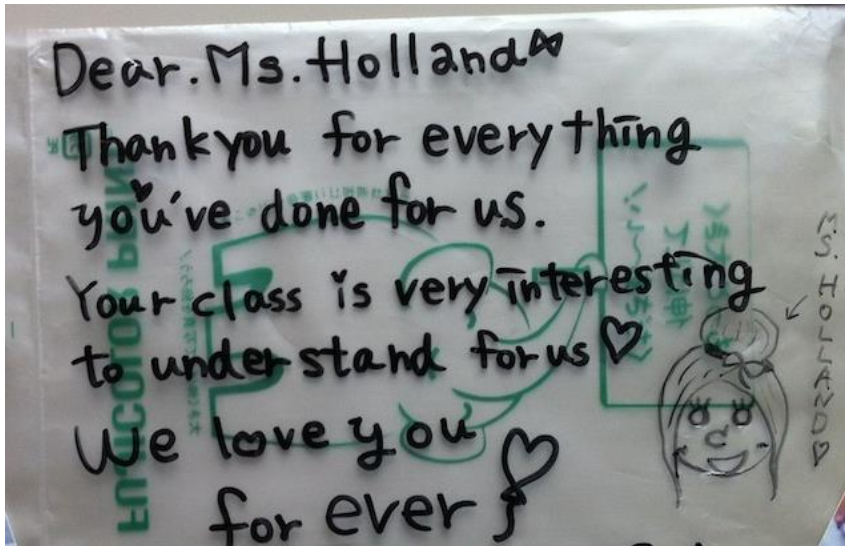 Dear. Ms. Holland
Thank you for everything
you've done for us.
Your class is very interesting
to understand for us♡
We love you
for ever
MS. HOLLAND♡
FUJICOLOR PRIN